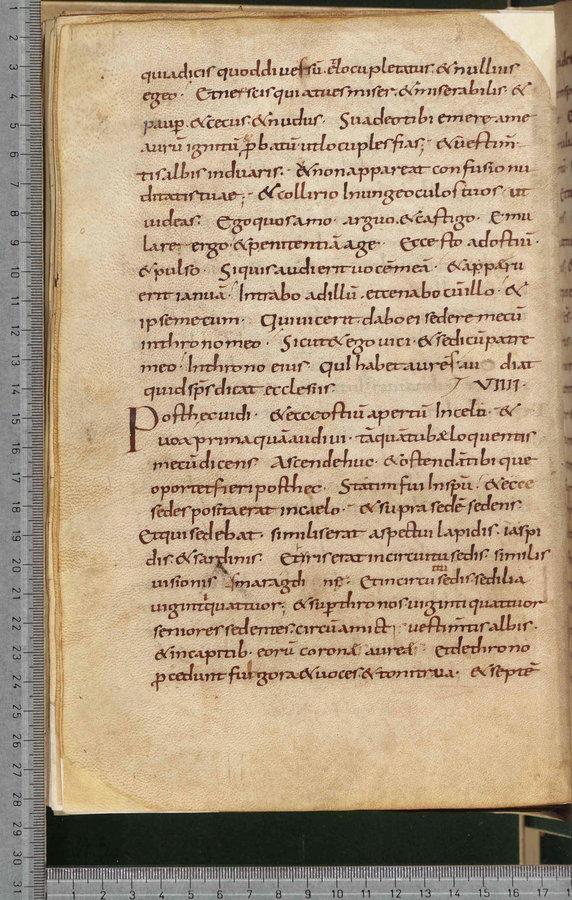 quia dicis quod dives sū. & locupletatus. & nullius
egeo. Et nescis quia tu es miser. & miserabilis. &
paup̄ & cecus & nudus. Suadeo tibi emere a me
aurū ignitū p̱batū ut locuples fias; & vestim̄
tis albis induaris. & non appareat confusio nu
ditatis tuae; & collirio Inunge oculos tuos. ut
uideas. Ego quos amo. arguo. & castigo. Emu
lare. ergo & penitentiā age. Ecce sto ad ostiū.
& pulso. Si quis audierit uocē meā. & apparu
erit ianuā. Intrabo ad illū. et cenabo cū illo. &
ipse mecum. Qui uicerit. dabo ei sedere mecū
in throno meo. Sicut & ego uici. & sedi cū patre
meo. In throno eius. Qui habet aures. audiat
quid sp̄s dicat ecclesiis. VIIII.
Post hec uidi. & ecce ostiū apertū In celo. &
uox prima quā audiui. tāquā tubae loquentis
mecū dicens. Ascende huc. & ostendā tibi que
oportet fieri post hec. Statim fui In spū. & ecce
sedes posita erat in caelo. & supra sedē sedens.
Et qui sedebat. similis erat aspectui lapidis. iaspi
dis. & sardinis. Et iris erat in circuitu sedis. similis
uisionis smaragdinę. Et in circuitu sedis sedilia
uiginti quattuor; & sup̄ thronos uiginti quattuor
seniores sedentes. circū amicti uestim̄tis albis.
& in capitib. eorū coronae aureae. Et de throno
p̱cedunt fulgora & uoces & tonitrua. & septē